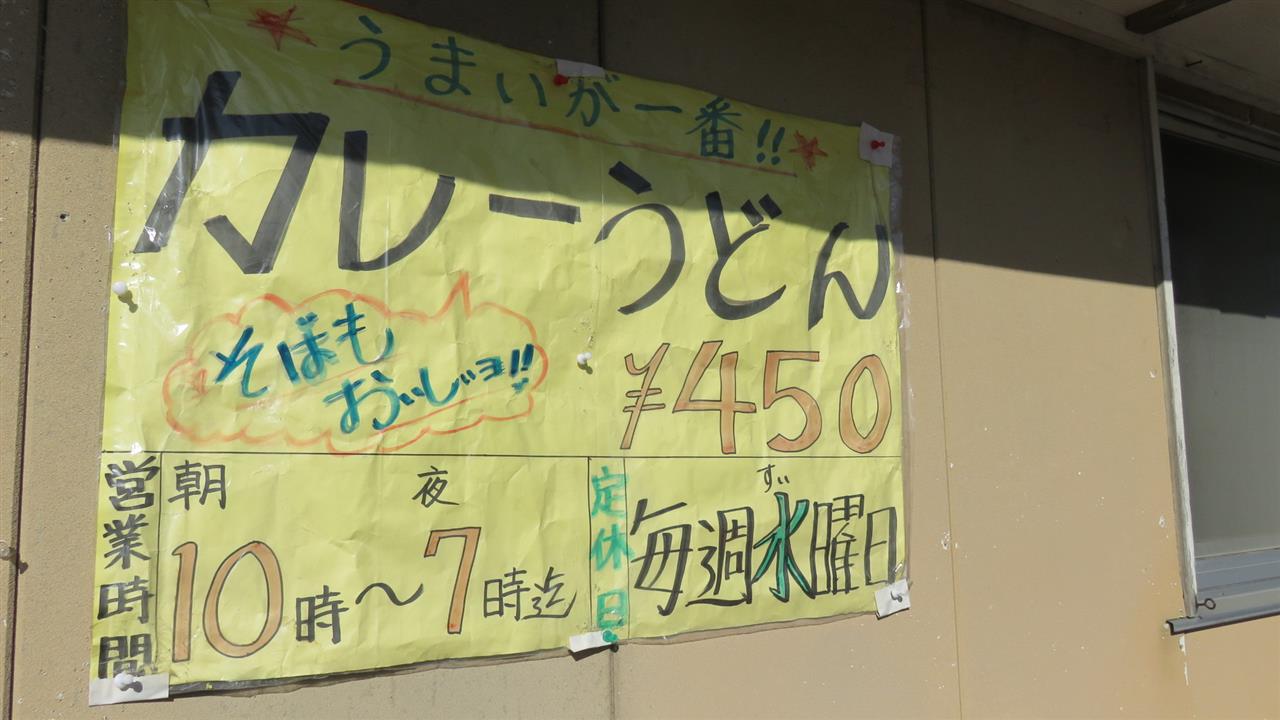 うまいが一番!!
カレーうどん
そばも
おいしいョ!!
¥450
営業時間
朝 夜
10時〜7時迄
定休日
ずい
毎週水曜日